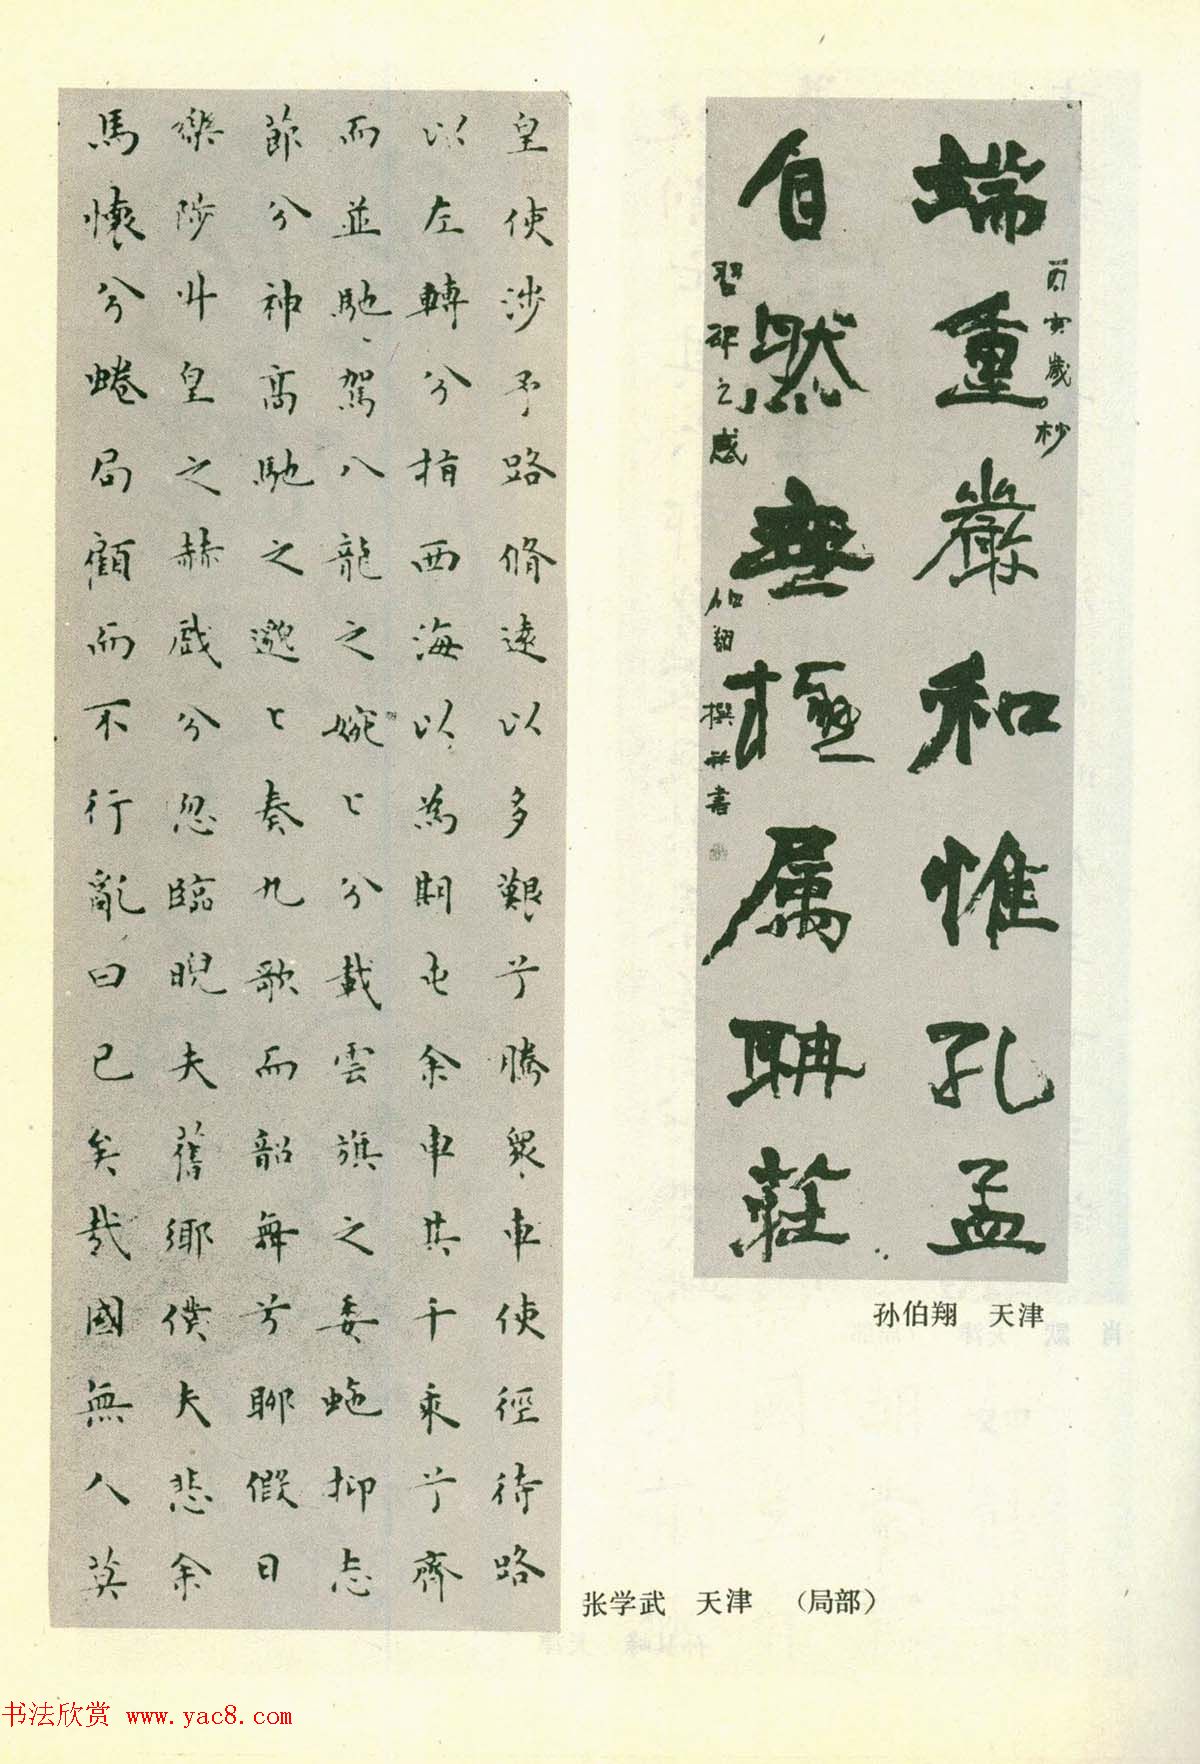 端重嚴和惟孔孟
自然無極属聃莊
丙寅歲杪
習碑之感
伯翔撰并書
孙伯翔 天津
皇使涉予路脩遠以多艱兮騰衆車使徑待路
以左轉兮指西海以為期屯余車其千乘兮齊
而並馳駕八龍之婉〻兮載雲旗之委蛇抑志
節兮神高馳之邈〻奏九歌而韶舞兮聊假日
樂陟升皇之赫戲兮忽臨睨夫舊鄉僕夫悲余
馬懷兮蜷局顧而不行亂曰已矣哉國無人莫
张学武 天津 （局部）
书法欣赏 www.yac8.com